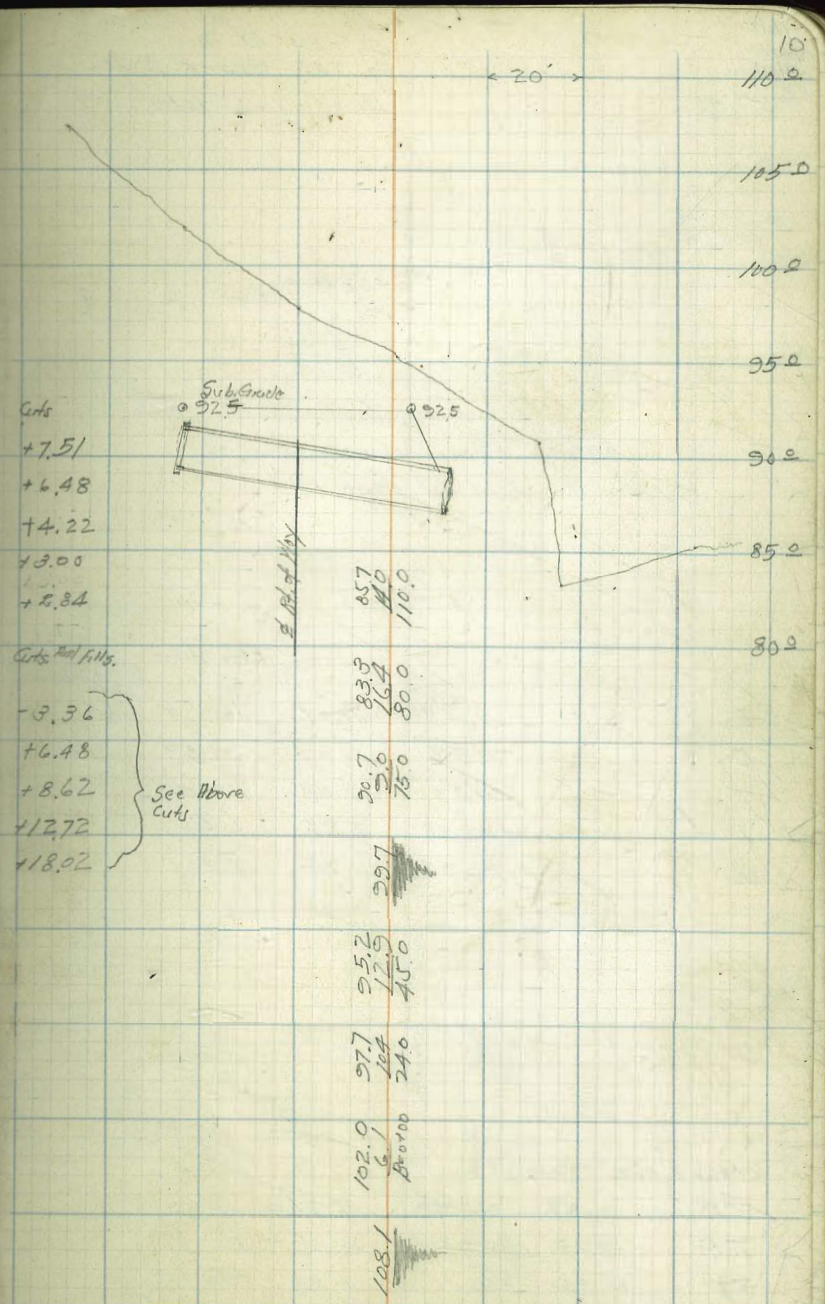 10
20'
110 0
105 0
100 0
95 0
90 0
85 0
80 0
Sub.Grade
92.5
92.5
Cuts
+7.51
+6.48
+4.22
+3.00
+2.84
Rd. of Way
Cuts And Fills.
-3.36
+6.48
+8.62
+12.72
+18.02
See Above
Cuts
85.7
14.0
110.0
83.3
16.4
80.0
90.7
9.0
75.0
99.7
95.2
12.9
45.0
97.7
10.4
24.0
102.0
6.1
0+00
108.1